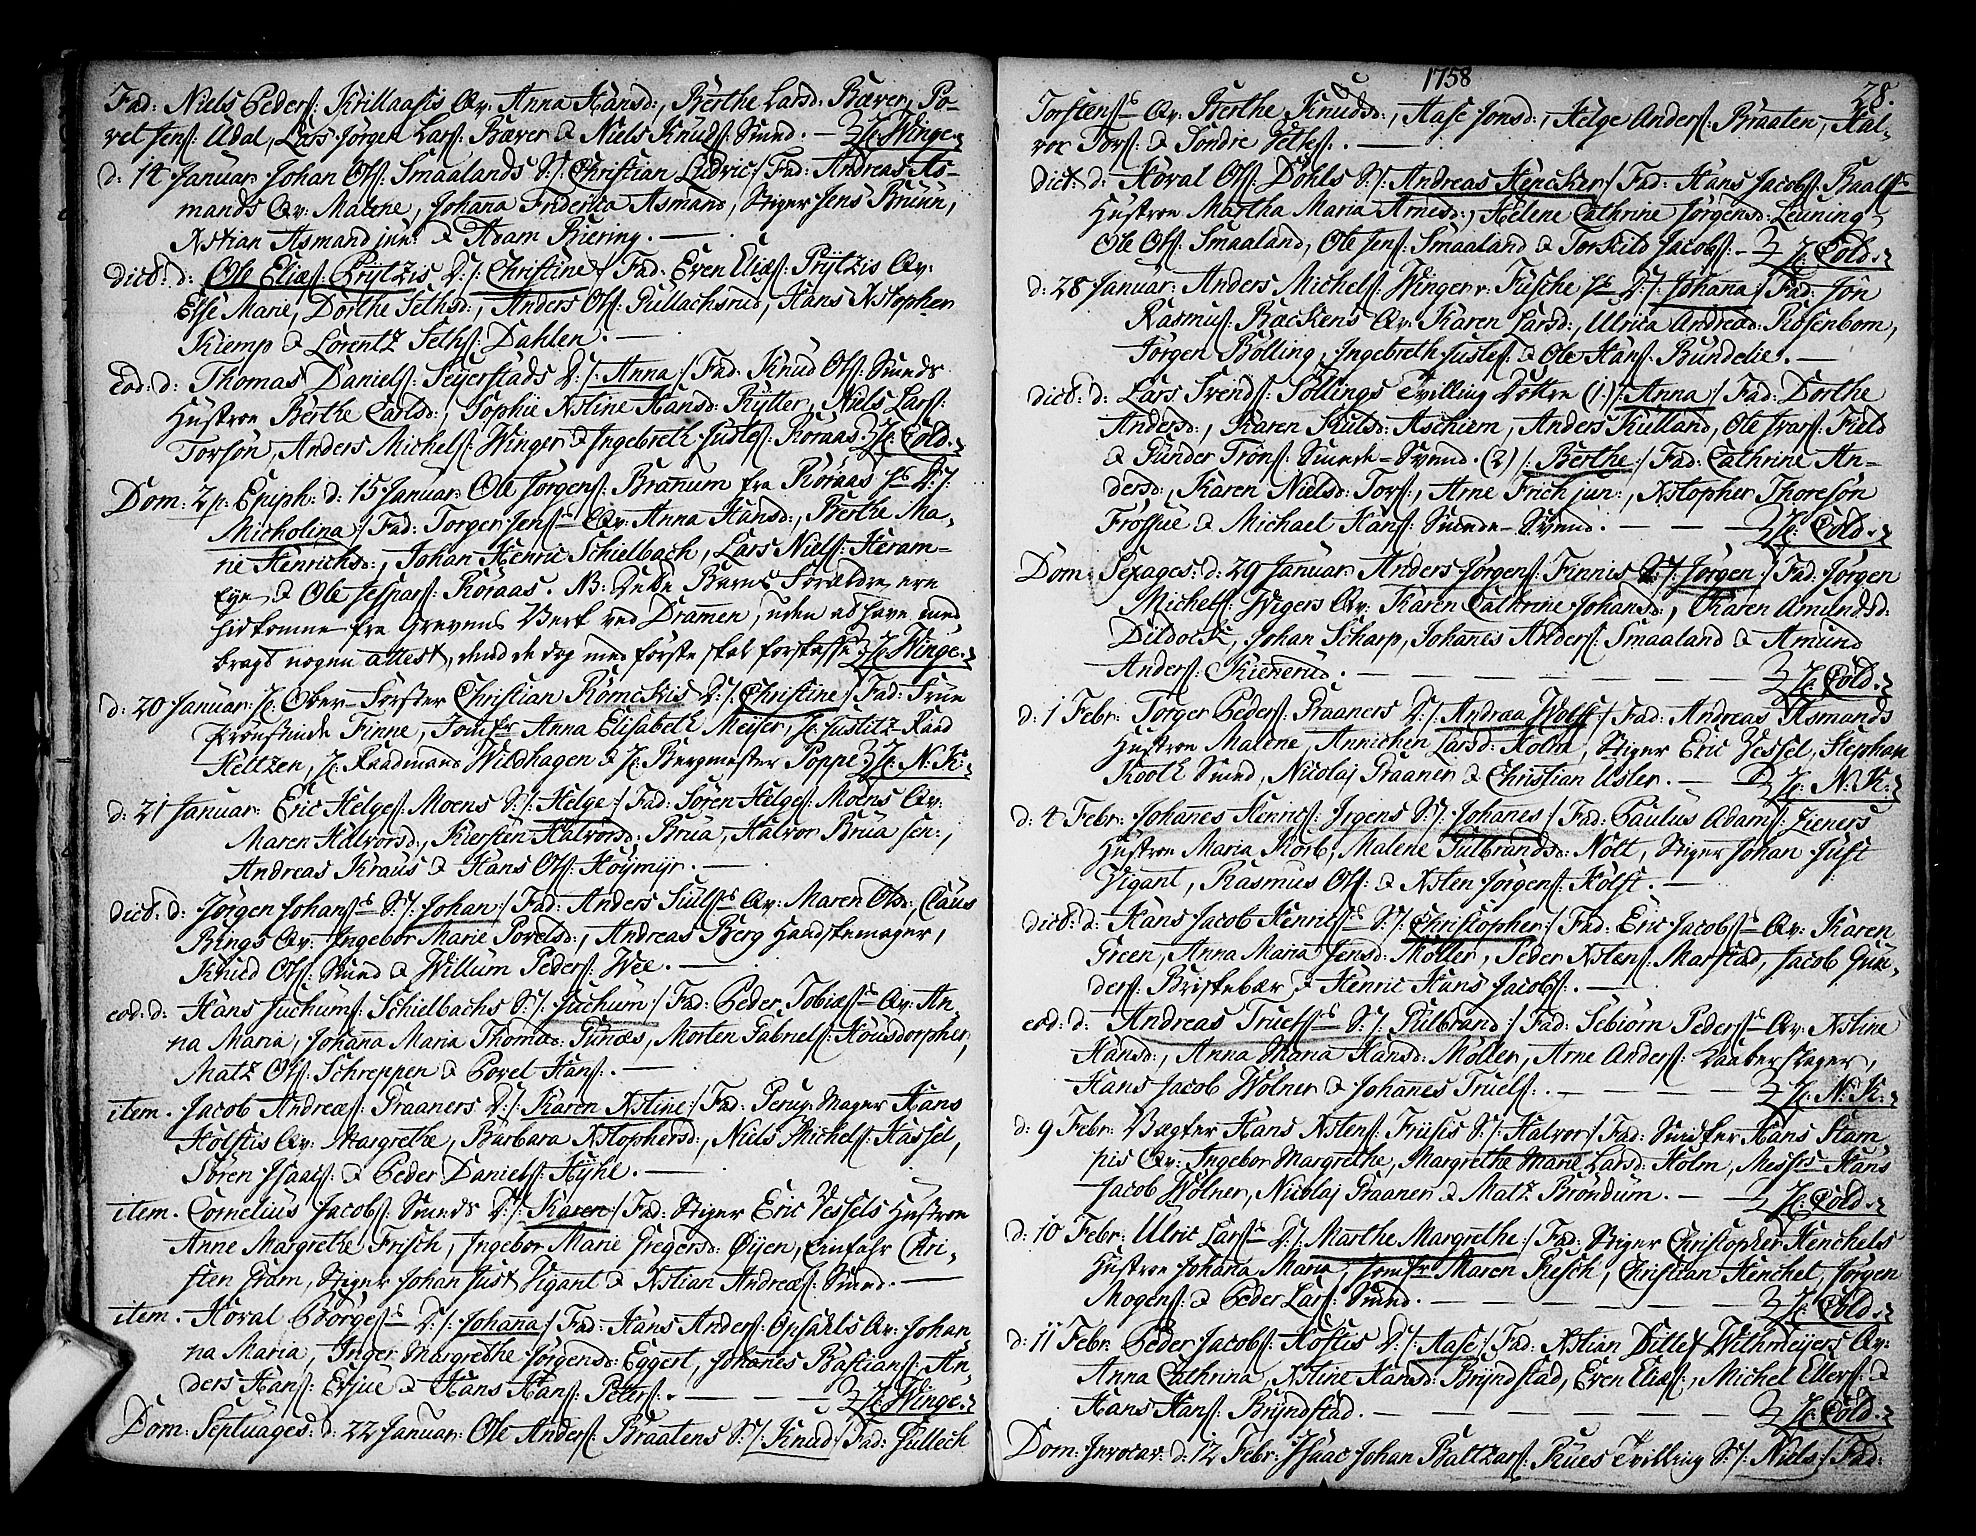 Fad: Niels Peders: Krillaasis Qv: Anna Hansd:, Berthe Larsd: Bæver, Po-
vel Jens: Udal, Lars Jørgen Lars: Bæver & Niels Knuds: Smed. — H: Winge.
d: 14 Januar: Johan Ols: Smaalands S:/: Christian Ludvic:/ Fad: Andreas As-
mands Qv: Malene, Johana Friderica Asmand, Stiger Jens Bruun,
Xstian Asmand jun: & Adam Biering. —
dict: d: Ole Eliæs: Prytzis D:/: Christine:/ Fad: Even Eliæs: Prytzis Qv:
Else Marie, Dorthe Sethsd:, Anders Ols: Gullachsrud, Hans Xstopher
Kiemp & Lorentz Seths: Dahlen. —
eod: d: Thomas Daniels: Seyerstads D:/: Anna:/ Fad: Knud Ols: Smeds
Hustroe Berthe Carlsd:, Sophie Xstine Hansd: Rytter, Niels Lars:
Torsøn, Anders Michels: Winger & Ingebreth Justes: Røraas. H: Cold.
Dom: 2 p: Epiph: d: 15 Januar: Ole Jørgens: Branum fra Røraas D:/:
Micholina:/ Fad: Torger Jens: Qv: Anna Hansd:, Berthe Ma-
rie Henrichsd:, Johan Henric Schielbach, Lars Niels: Heram-
Eye & Ole Jespars: Røraas. NB: Dette Barns Forældre ere
hidkomne fra Grevens Verk ved Drammen, uden at have med
bragt nogen attest, mend de dog med første skal forskaffe. H: Winge.
d: 20 Januar: H: Ober-Forster Christian Romckis D:/: Christine:/ Fad: Frue
Finne, Jomfr Anna Elisabeth Meyer, H: Justitz-Raad
Heltzen, H: Raadmand Wildhagen & H: Bergmester Poppe. H: N: K:
d: 21 Januar: Eric Helges: Moens S:/: Helge:/ Fad: Søren Helges: Moens Qv:
Maren Halvorsd:, Kiersten Halvorsd: Brua, Halvor Brua sen:,
Andreas Kraus & Hans Ols: Høymyr. —
dict: d: Jørgen Johans: S:/: Johan:/ Fad: Anders Juls: Qv: Maren Olsd:, Claus
Bings Qv: Ingebor Marie Povelsd:, Andreas Berg Handskemager,
Knud Ols: Smed & Willum Peders: Wee. —
eod: d: Hans Juchums: Schielbachs S:/: Juchum:/ Fad: Peder Tobiæs: Qv: An-
na Maria, Johana Maria Thomæ: Punæs, Morten Gabriels: Housdorpher,
Matz Ols: Schreppen & Povel Hans:. —
item. Jacob Andreæs: Praaners D:/: Karen Xstine:/ Fad: Peruq: Mager Hans
Holstis Qv: Margrethe, Barbara Xstophersd:, Niels Michels: Hassel,
Søren Isaacs: & Peder Daniels: Hyhl. —
item. Cornelius Jacobs: Smeds D:/: Karen:/ Fad: Stiger Eric Vessels Hustroe
Anne Margrethe Frisch, Ingebor Marie Gregersd: Øyen, Einfahr Chri-
sten Pram, Stiger Johan Just Vigant & Xstian Andreæs: Smed. —
item. Horal Børges: D:/: Johana:/ Fad: Hans Anders: Opsahls Qv: Johan-
na Maria, Inger Margrethe Jørgensd: Eggert, Johanes Bastians:, An-
ders Hans: Erjue & Hans Hans: Peters:. — H: Winge.
Dom: Septuages: d: 22 Januar: Ole Anders: Braatens S:/: Knud:/ Fad: Gullech
1758
28.
Torstens: Qv: Berthe Knudsd:, Aase Jonsd:, Helge Anders: Braaten, Hal-
vor Tors: & Sondre Seths:. —
dict: d: Horal Ols: Dohls S:/: Andreas Hencker:/ Fad: Hans Jacobs: Baals
Hustroe Martha Maria Arnesd:, Helene Cathrine Jørgensd: Leuning,
Ole Ols: Smaaland, Ole Jens: Smaaland & Torkild Jacobs:. — H: Cold.
d: 28 Januar: Anders Michels: Winger v: Fusche D:/: Johana:/ Fad: Jon
Rasmus: Backens Qv: Karen Larsd:, Ulrica Andreæd: Rosenbom,
Jørgen Bølling, Ingebreth Justes: & Ole Hans: Bundelie. —
dict: d: Lars Svends: Sollings Tvilling Døttre (1):/: Anna:/ Fad: Dorthe
Andersd:, Karen Kulsd: Aschiem, Anders Kulland, Ole Ivars: Field
& Gunder Trøns: Smede-Svend. (2):/: Berthe:/ Fad: Cathrine An-
dersd:, Karen Nielsd: Tors:, Arne Frich jun:, Xstopher Thoresøn
Frossue & Michael Hans: Smede-Svend. — H: Cold.
Dom: Sexages: d: 29 Januar: Anders Jørgens: Finnis S:/: Jørgen:/ Fad: Jørgen
Michels: Wigers Qv: Karen Cathrine Johansd:, Karen Amundsd:
Dildock, Johan Scharp, Johanes Anders: Smaaland & Amund
Anders: Kiennerud. — H: Cold.
d: 1 Febr: Torger Peders: Praaners D:/: Andræa Wolff:/ Fad: Andreas Asmands
Hustroe Malene, Annichen Larsd: Holm, Stiger Eric Vessel, Stephan
Kooth Smed, Nicolaj Praaner & Christian Usler. — H: N: K:
d: 4 Febr: Johanes Henrics: Irgens S:/: Johanes:/ Fad: Paulus Adams: Zieners
Hustroe Maria Korb, Malene Gulbrandsd: Nøtt, Stiger Johan Just
Vigant, Rasmus Ols: & Xsten Jørgens: Holst. —
dict: d: Hans Jacob Henrics: S:/: Christopher:/ Fad: Eric Jacobs: Qv: Karen
Green, Anna Maria Jensd: Møller, Peder Xstens: Marstad, Jacob Gun-
ders: Briskebær & Henric Hans Jacobs:. —
eod: d: Andreas Truels: S:/: Gulbrand:/ Fad: Sebiørn Peders: Qv: Xstine
Hansd:, Anna Maria Hansd: Møller, Arne Anders: Laaberstager,
Hans Jacob Wølner & Johanes Truels:. — H: N: K:
d: 9 Febr: Vægter Hans Xstens: Friisis S:/: Halvor:/ Fad: Hans Stam-
pis Qv: Ingebor Margrethe, Margrethe Marie Larsd: Holm, Messrs Hans
Jacob Wølner, Nicolaj Praaner & Matz Brøndum. — H: Cold.
d: 10 Febr: Ulric Lars: D:/: Marthe Margrethe:/ Fad: Stiger Christopher Henchels
Hustroe Johana Maria, Jomfr Maren Resch, Christian Henchel, Jørgen
Mogens: & Peder Lars: Smed. — H: Cold.
d: 11 Febr: Peder Jacobs: Hoftis D:/: Aase:/ Fad: Xstian Ditlef Withmeyers Qv:
Anna Cathrina, Xstine Hansd: Bryndstad, Even Eliæs:, Michel Ellers: &
Hans Hans: Bryndstad. — H: Cold.
Dom: Invocav: d: 12 Febr: Isaac Johan Baltzars: Rues Tvilling S:/: Niels:/ Fad: